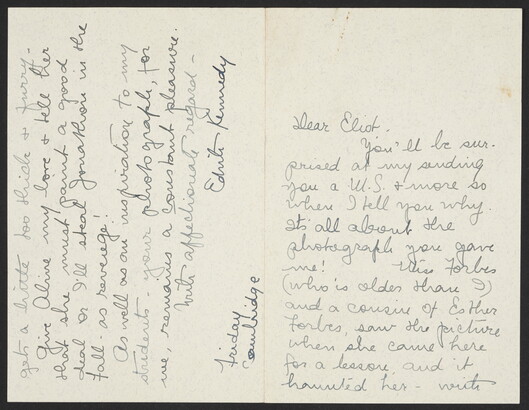 Dear Eliot,
You'll be sur-
prised at my sending
you a M.S. & more so
when I tell you why.
Its all about the
photograph you gave
me! Miss Forbes
(who is older than I)
and a cousin of Esther
Forbes, saw the picture
when she came here
for a lesson, and it
haunted her - with
gets a little too thick & furry -
Give Aline my love & tell her
that she must paint a good
deal or I'll steal Jonathan in the
fall - as revenge!
As well as an inspiration to my
students - your photograph, for
me, remains a constant pleasure.
With affectionate regard -
Edith Kennedy
Friday
Cambridge